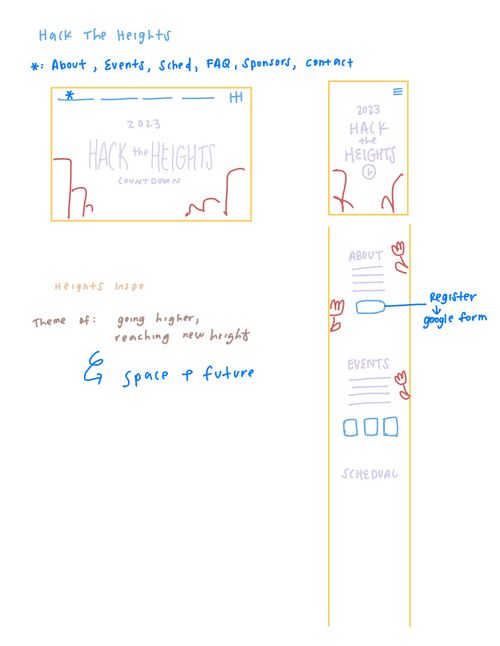 Hack The Heights
*: About, Events, Sched, FAQ, Sponsors, contact
*
HH
2023
HACK the HEIGHTS
COUNTDOWN
2023
HACK
the
HEIGHTS
ABOUT
Register
google form
Heights Inspo
Theme of: going higher,
reaching new heights
space + future
EVENTS
SCHEDUAL